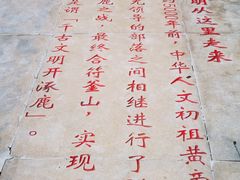 明从这里走来
5000年前，中华人文初祖黄帝
先领导的部落之间相继进行了
鹿之战，最终合符釜山，实现
是谓「千古文明开涿鹿」。